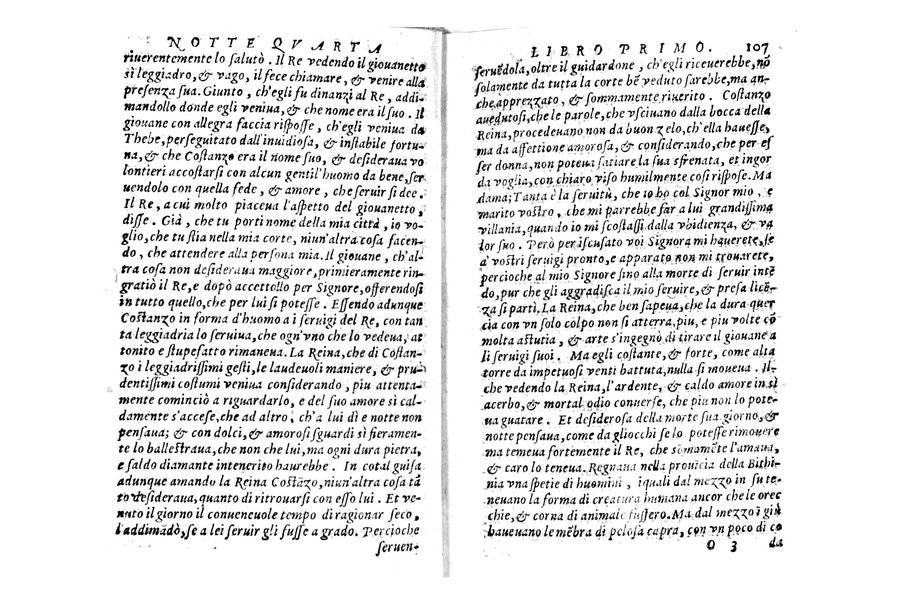 NOTTE QVARTA
riuerentemente lo salutò. Il Re vedendo il giouanetto
sì leggiadro, & vago, il fece chiamare, & venire alla
presenza sua. Giunto, ch'egli fu dinanzi al Re, addi-
mandollo donde egli veniua, & che nome era il suo. Il
giouane con allegra faccia rispose, ch'egli veniua da
Thebe, perseguitato dall'inuidiosa, & instabile fortu-
na, & che Costanzo era il nome suo, & desideraua vo
lontieri accostarsi con alcun gentil'huomo da bene, ser
uendolo con quella fede, & amore, che seruir si dee.
Il Re, a cui molto piaceua l'aspetto del giouanetto,
disse. Già, che tu porti nome della mia città, io vo-
glio, che tu stia nella mia corte, niun'altra cosa facen-
do, che attendere alla persona mia. Il giouane, ch'al-
tra cosa non desideraua maggiore, primieramente rin-
gratiò il Re, e dopò accettollo per Signore, offerendosi
in tutto quello, che per lui si potesse. Essendo adunque
Costanzo in forma d'huomo a i seruigi del Re, con tan
ta leggiadria lo seruiua, che ogn'vno che lo vedeua, at
tonito e stupefatto rimaneua. La Reina, che di Costan-
zo i leggiadrissimi gesti, le laudeuoli maniere, & pru-
dentissimi costumi veniua considerando, piu attenta-
mente cominciò a riguardarlo, e del suo amore sì cal-
damente s'accese, che ad altro, ch'a lui dì e notte non
pensaua; & con dolci, & amorosi sguardi sì fieramen-
te lo ballestraua, che non che lui, ma ogni dura pietra,
e saldo diamante intenerito haurebbe. In cotal guisa
adunque amando la Reina Costãzo, niun'altra cosa tã
to desideraua, quanto di ritrouarsi con esso lui. Et ve-
nuto il giorno il conueneuole tempo di ragionar seco,
l'addimãdò, se a lei seruir gli fusse a grado. Percioche
seruen-
LIBRO PRIMO. 107
seruẽdola, oltre il guidardone, ch'egli riceuerebbe, nõ
solamente da tutta la corte bẽ veduto sarebbe, ma an-
che apprezzato, & sommamente riuerito. Costanzo
auedutosi, che le parole, che vsciuano dalla bocca della
Reina, procedeuano non da buon zelo, ch'ella hauesse,
ma da affettione amorosa, & considerando, che per es
ser donna, non poteua satiare la sua sfrenata, et ingor
da voglia, con chiaro viso humilmente così rispose. Ma
dama; Tanta è la seruitù, che io ho col Signor mio, e
marito vostro, che mi parrebbe far a lui grandissima
villania, quando io mi scostassi dalla vbidienza, & va
lor suo. Però per iscusato voi Signora mi hauerete, se
a' vostri seruigi pronto, e apparato non mi trouarete,
percioche al mio Signore fino alla morte di seruir intẽ
do, pur che gli aggradisca il mio seruire, & presa licẽ-
za si partì. La Reina, che ben sapeua, che la dura quer
cia con vn solo colpo non si atterra, piu, e piu volte cõ
molta astutia, & arte s'ingegnò di tirare il giouane a
li seruigi suoi. Ma egli costante, & forte, come alta
torre da impetuosi venti battuta, nulla si moueua. Il
che vedendo la Reina, l'ardente, & caldo amore in sì
acerbo, & mortal odio conuerse, che piu non lo pote-
ua guatare. Et desiderosa della morte sua giorno, &
notte pensaua, come da gliocchi se lo potesse rimouere
ma temeua fortemente il Re, che sommamẽte l'amaua,
& caro lo teneua. Regnaua nella prouicia della Bithi-
nia vna spetie di huomini, iquali dal mezzo in su te-
neuano la forma di creatura humana ancor che le orec
chie, & corna di animale fussero. Ma dal mezzo in giu
haueuano le mẽbra di pelosa capra, con vn poco di co
O 3 da